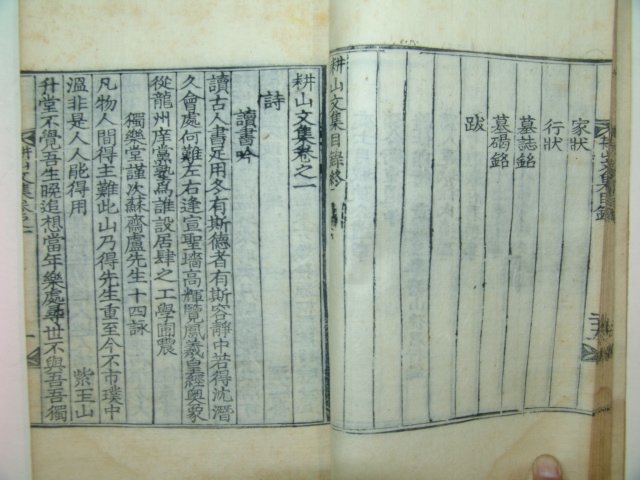 家狀
行狀
墓誌銘
墓碣銘
跋
耕山文集目錄終
耕山文集卷之一
詩
讀書吟
讀古人書足用冬有斯德者有斯容靜中若得沈潛
久會處何難左右逢宣聖墻高輝覽風羲皇經奧象
從龍州庠黨塾爲誰設居肆之工學圃農
獨樂堂謹次蘇齋盧先生十四詠
凡物人間得主難此山乃得先生重至今不市璞中
溫非是人人能得用 紫玉山
升堂不覺吾生晚追想當年樂處尋世不與吾吾獨